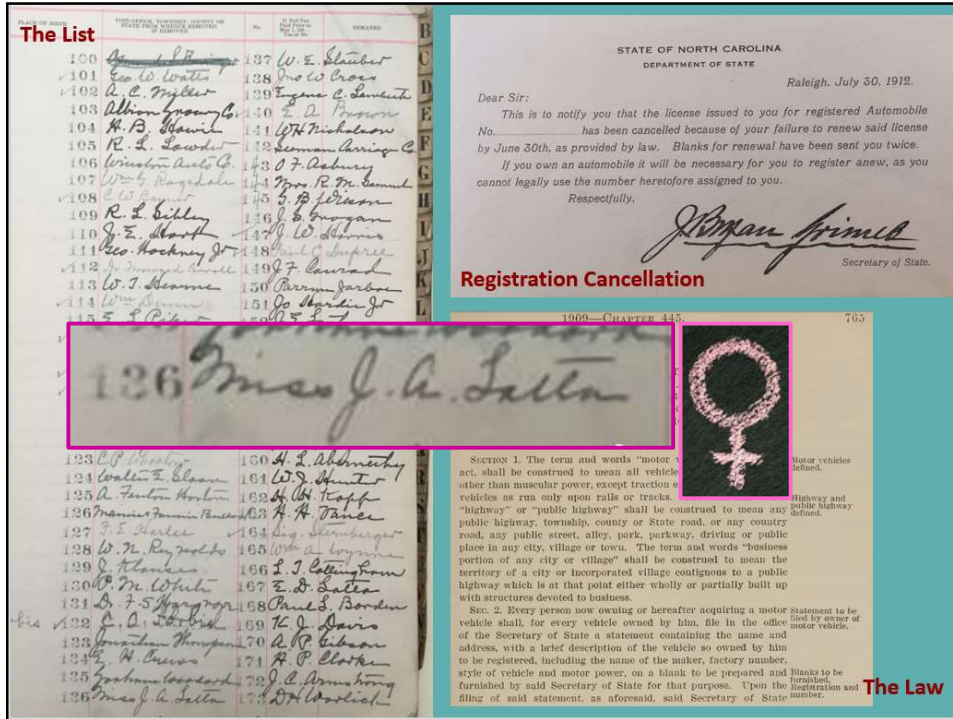 The List
PLACE OF BIRTH
POST-OFFICE, TOWNSHIP, COUNTY OR
STATE FROM WHENCE REMOVED,
IF REMOVED
No.
If Poll Tax
Paid Prior to
REMARKS
100
101 Geo. W. Watts
102 A. C. Miller
103 Albion Grocery Co.
104 H. B.
105 R. L. Lowder
106 Winston Auto Co.
107 Wm G. Ragsdale
108 C W Baynes
109 R. L. Sibley
110 J. E. Hart
111 Geo. Hackney Jr
112
113 W. T. Hearne
114 Wm Dunn
115
123 C. P.
124 Walter E. Sloan
125 A. Fenton Horton
126 Fannie
127 F. E. Harlee
128 W. N. Reynolds
129 J.
130 P. M. White
131 Dr. F. S. Hargrove
bis 132 C. A.
133 Jonathan Thompson
134 E. H. Crews
135 Woodard
136 Miss J. A. Latta
137 W. E. Stauber
138 Jno W Cross
139 Eugene C. Lambeth
140 E. A. Brown
141 W H Nicholson
142 Seeman Carriage Co.
143 O. F. Asbury
144 Mrs. R. M. Samuel
145 G. B. Wilson
146 J. S. Grogan
147 J. W. Harris
148 Paul C.
149 J. F. Conrad
150 Jarboe
151 Jo Hardin Jr
160 H. L. Abernethy
161 W. J. Hunter
162 H. H. Kapp
163 H. H. Vance
164 Sig. Sternberger
165 Wm A.
166 L. J. Cottingham
167 E. D. Latta
168 Paul S. Borden
169 K. J. Davis
170 A. P. Gibson
171 H. P. Clarke
172 J. C. Armstrong
173 D H
B
C
D
E
F
G
H
I
J
K
L
136 Miss J. A. Latta
STATE OF NORTH CAROLINA
DEPARTMENT OF STATE
Raleigh, July 30, 1912.
Dear Sir:
This is to notify you that the license issued to you for registered Automobile
No. has been cancelled because of your failure to renew said license
by June 30th, as provided by law. Blanks for renewal have been sent you twice.
If you own an automobile it will be necessary for you to register anew, as you
cannot legally use the number heretofore assigned to you.
Respectfully,
J Bryan Grimes
Secretary of State.
Registration Cancellation
1909—CHAPTER 445. 765
SECTION 1. The term and words "motor
act, shall be construed to mean all vehicle
other than muscular power, except traction e
vehicles as run only upon rails or tracks.
"highway" or "public highway" shall be construed to mean any
public highway, township, county or State road, or any country
road, any public street, alley, park, parkway, driving or public
place in any city, village or town. The term and words "business
portion of any city or village" shall be construed to mean the
territory of a city or incorporated village contiguous to a public
highway which is at that point either wholly or partially built up
with structures devoted to business.
SEC. 2. Every person now owning or hereafter acquiring a motor
vehicle shall, for every vehicle owned by him, file in the office
of the Secretary of State a statement containing the name and
address, with a brief description of the vehicle so owned by him
to be registered, including the name of the maker, factory number,
style of vehicle and motor power, on a blank to be prepared and
furnished by said Secretary of State for that purpose. Upon the
filing of said statement, as aforesaid, said Secretary of State
Motor vehicles
defined.
Highway and
public highway
defined.
Statement to be
filed by owner of
motor vehicle.
Blanks to be
furnished.
Registration and
number.
The Law